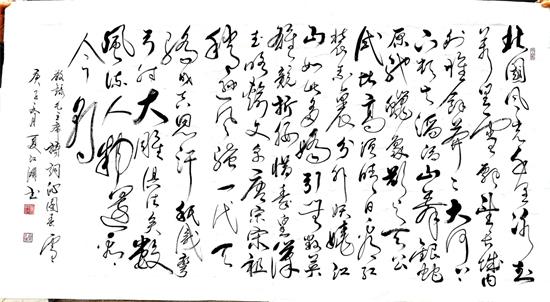 北國風光千里冰封
萬里雪飄望長城內
外惟餘莽莽大河上
下頓失滔滔山舞銀蛇
原馳蠟象欲與天公
試比高須晴日看紅
裝素裹分外妖嬈江
山如此多嬌引無數英
雄競折腰惜秦皇漢
武略輸文采唐宗宋祖
稍遜風騷一代天
驕成吉思汗祇識彎
弓射大雕俱往矣數
風流人物還看
今朝
敬錄毛主席詩詞沁園春雪
庚子冬月夏江湖書